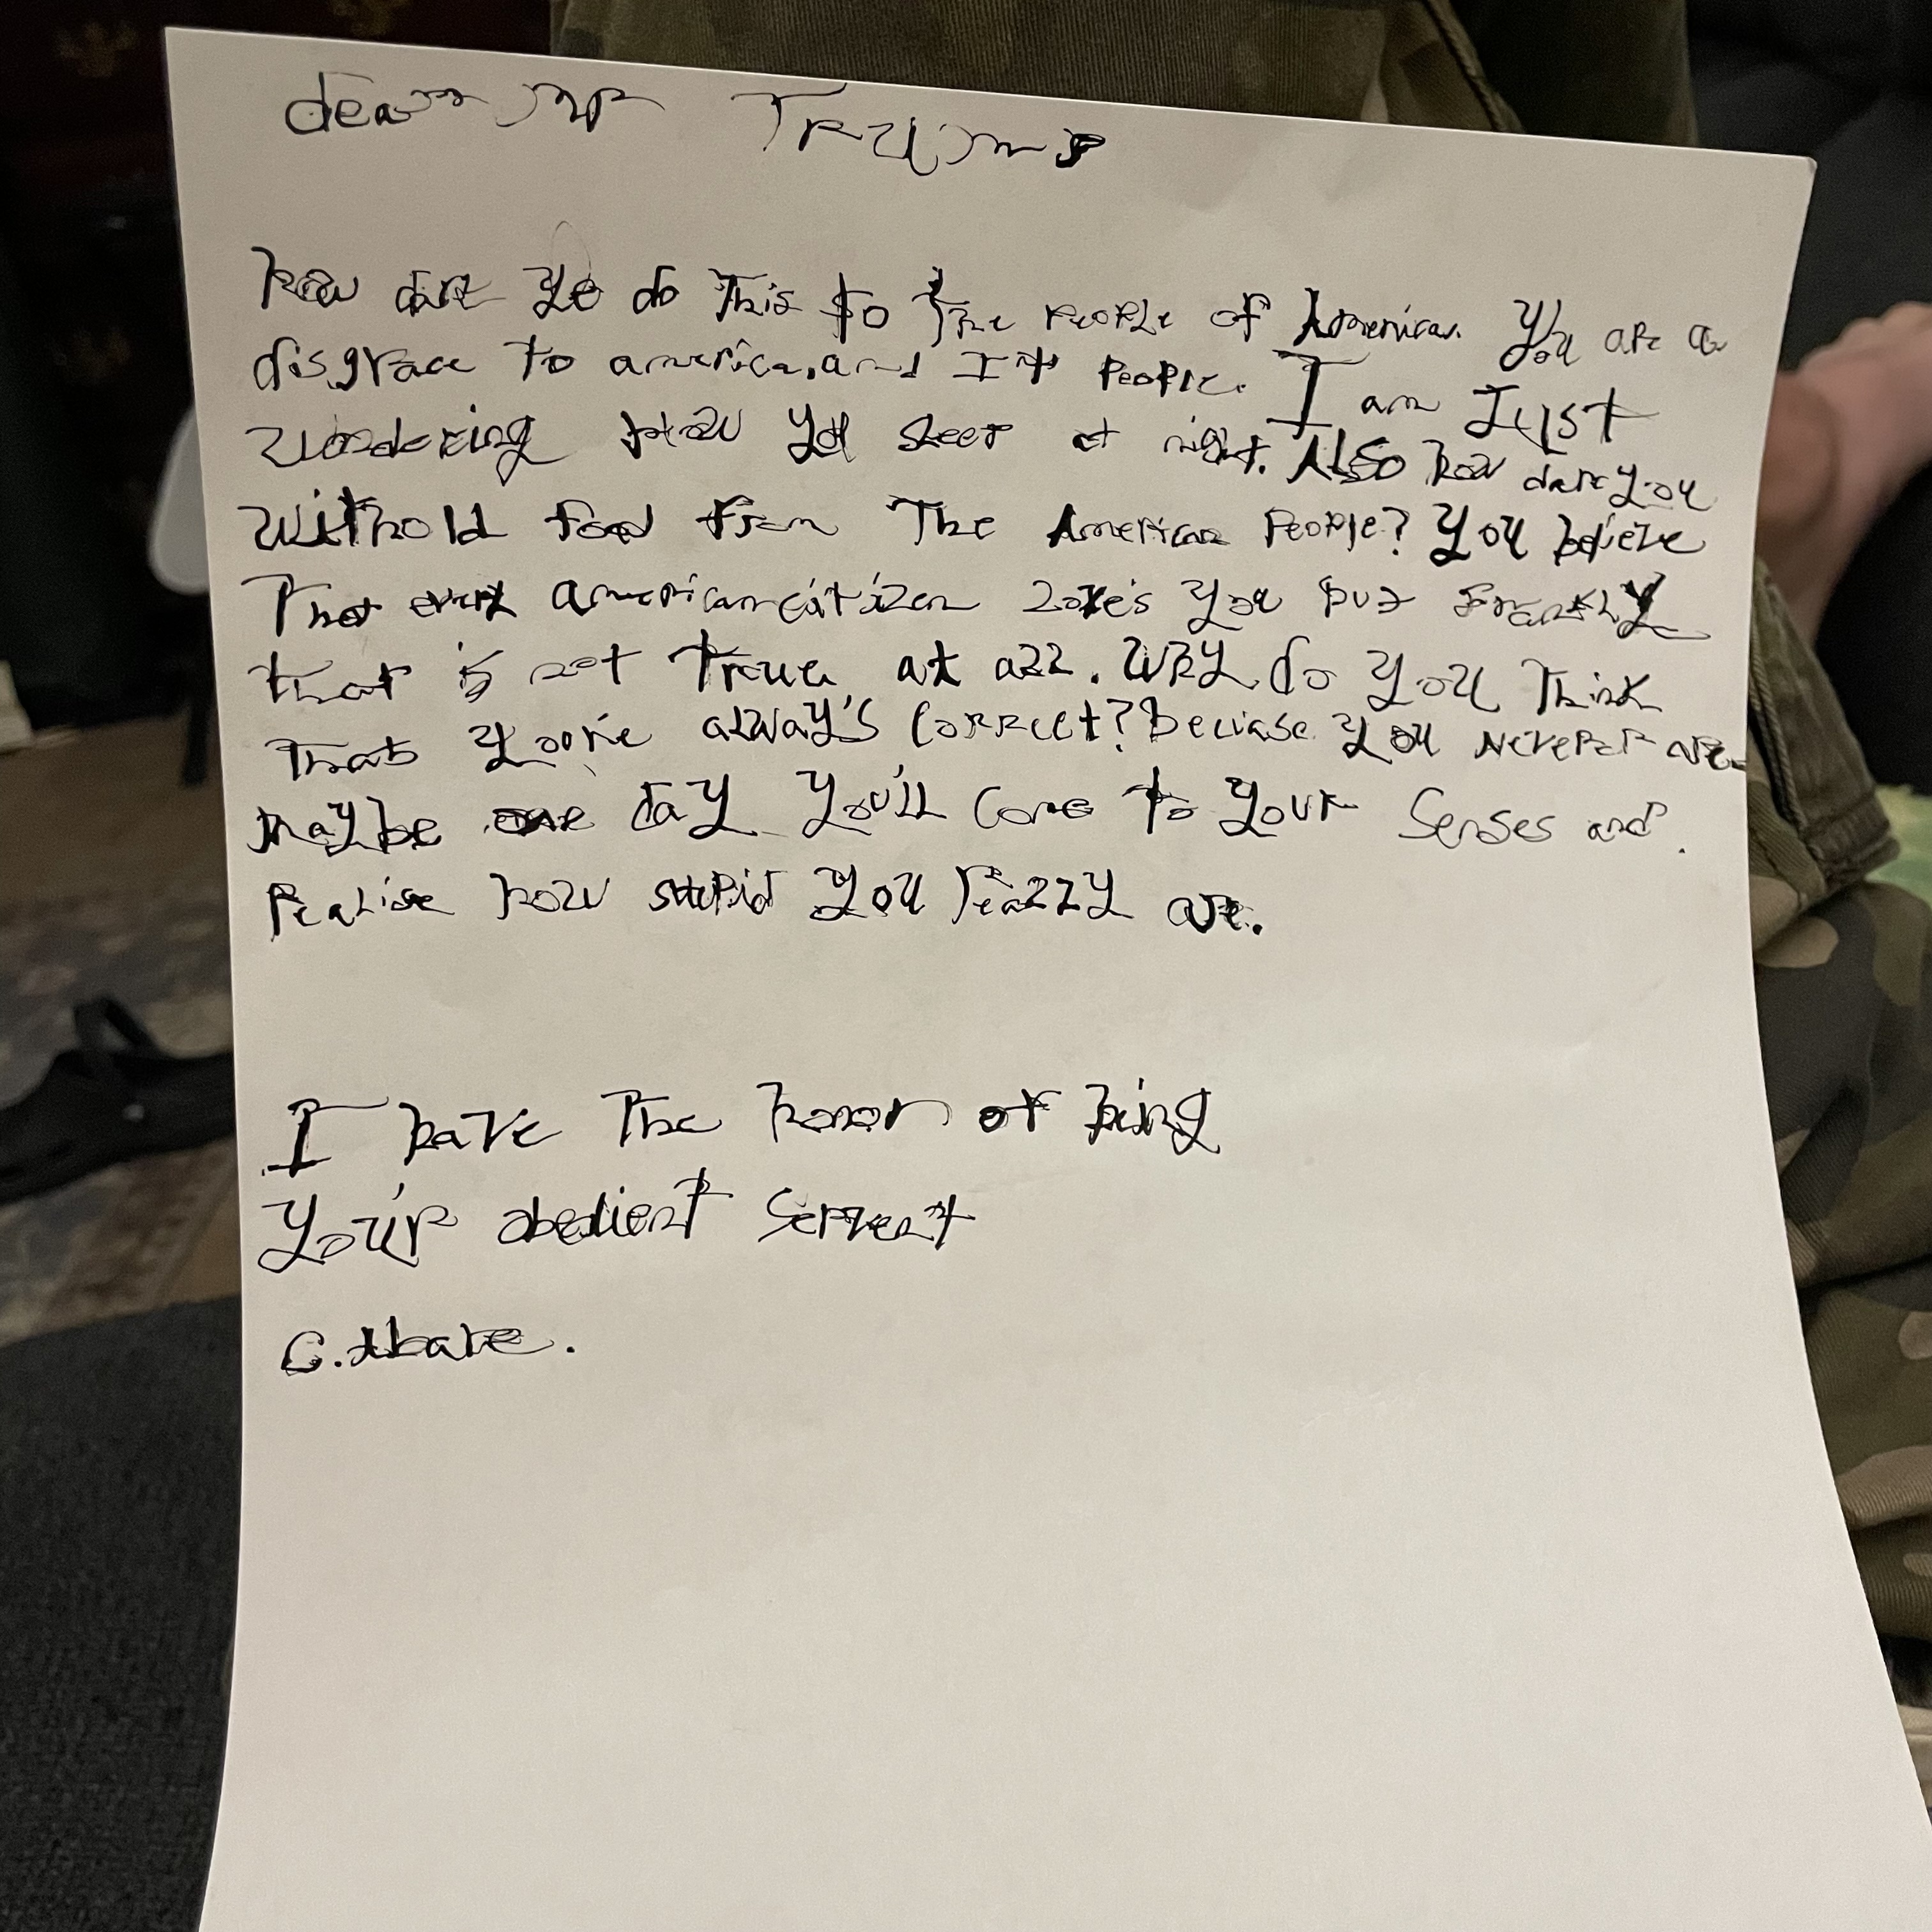 dear mr Trump
how dare yo do This to The People of America. You are a
disgrace to america, and It's People. I am Just
wondering how you sleep at night. Also how dare you
withold food from The American People? You believe
That every american citizen love's you but frankly
that is not True at all. Why do you Think
That your'e alway's Correct? Because you never are.
maybe one day you'll Come to your Senses and
realise how stupid you really are.
I have The honor of being
You'r obedient Servent